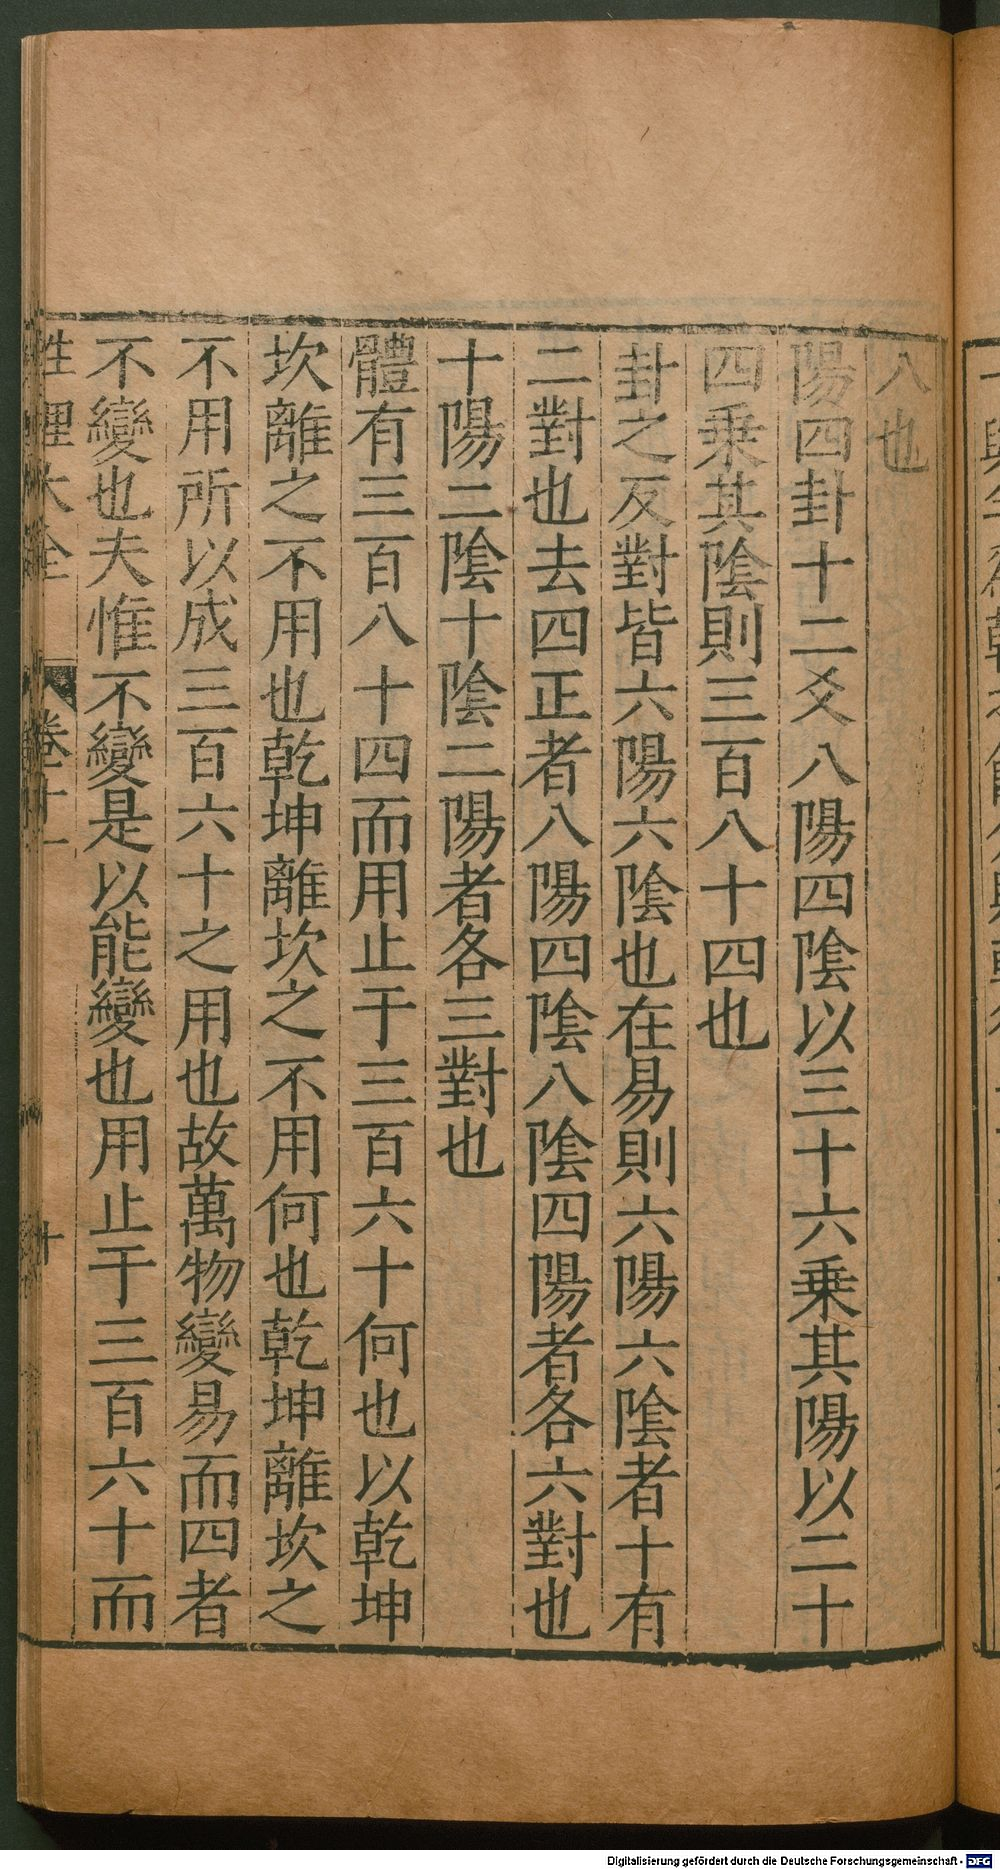 八也
陽四卦十二爻八陽四陰以三十六乗其陽以二十
四乗其陰則三百八十四也
卦之反對皆六陽六陰也在易則六陽六陰者十有
二對也去四正者八陽四陰八陰四陽者各六對也
十陽二陰十陰二陽者各三對也
體有三百八十四而用止于三百六十何也以乾坤
坎離之不用也乾坤離坎之不用何也乾坤離坎之
不用所以成三百六十之用也故萬物變易而四者
不變也夫惟不變是以能變也用止于三百六十而
性理大全 卷十一 十
Digitalisierung gefördert durch die Deutsche Forschungsgemeinschaft - DFG